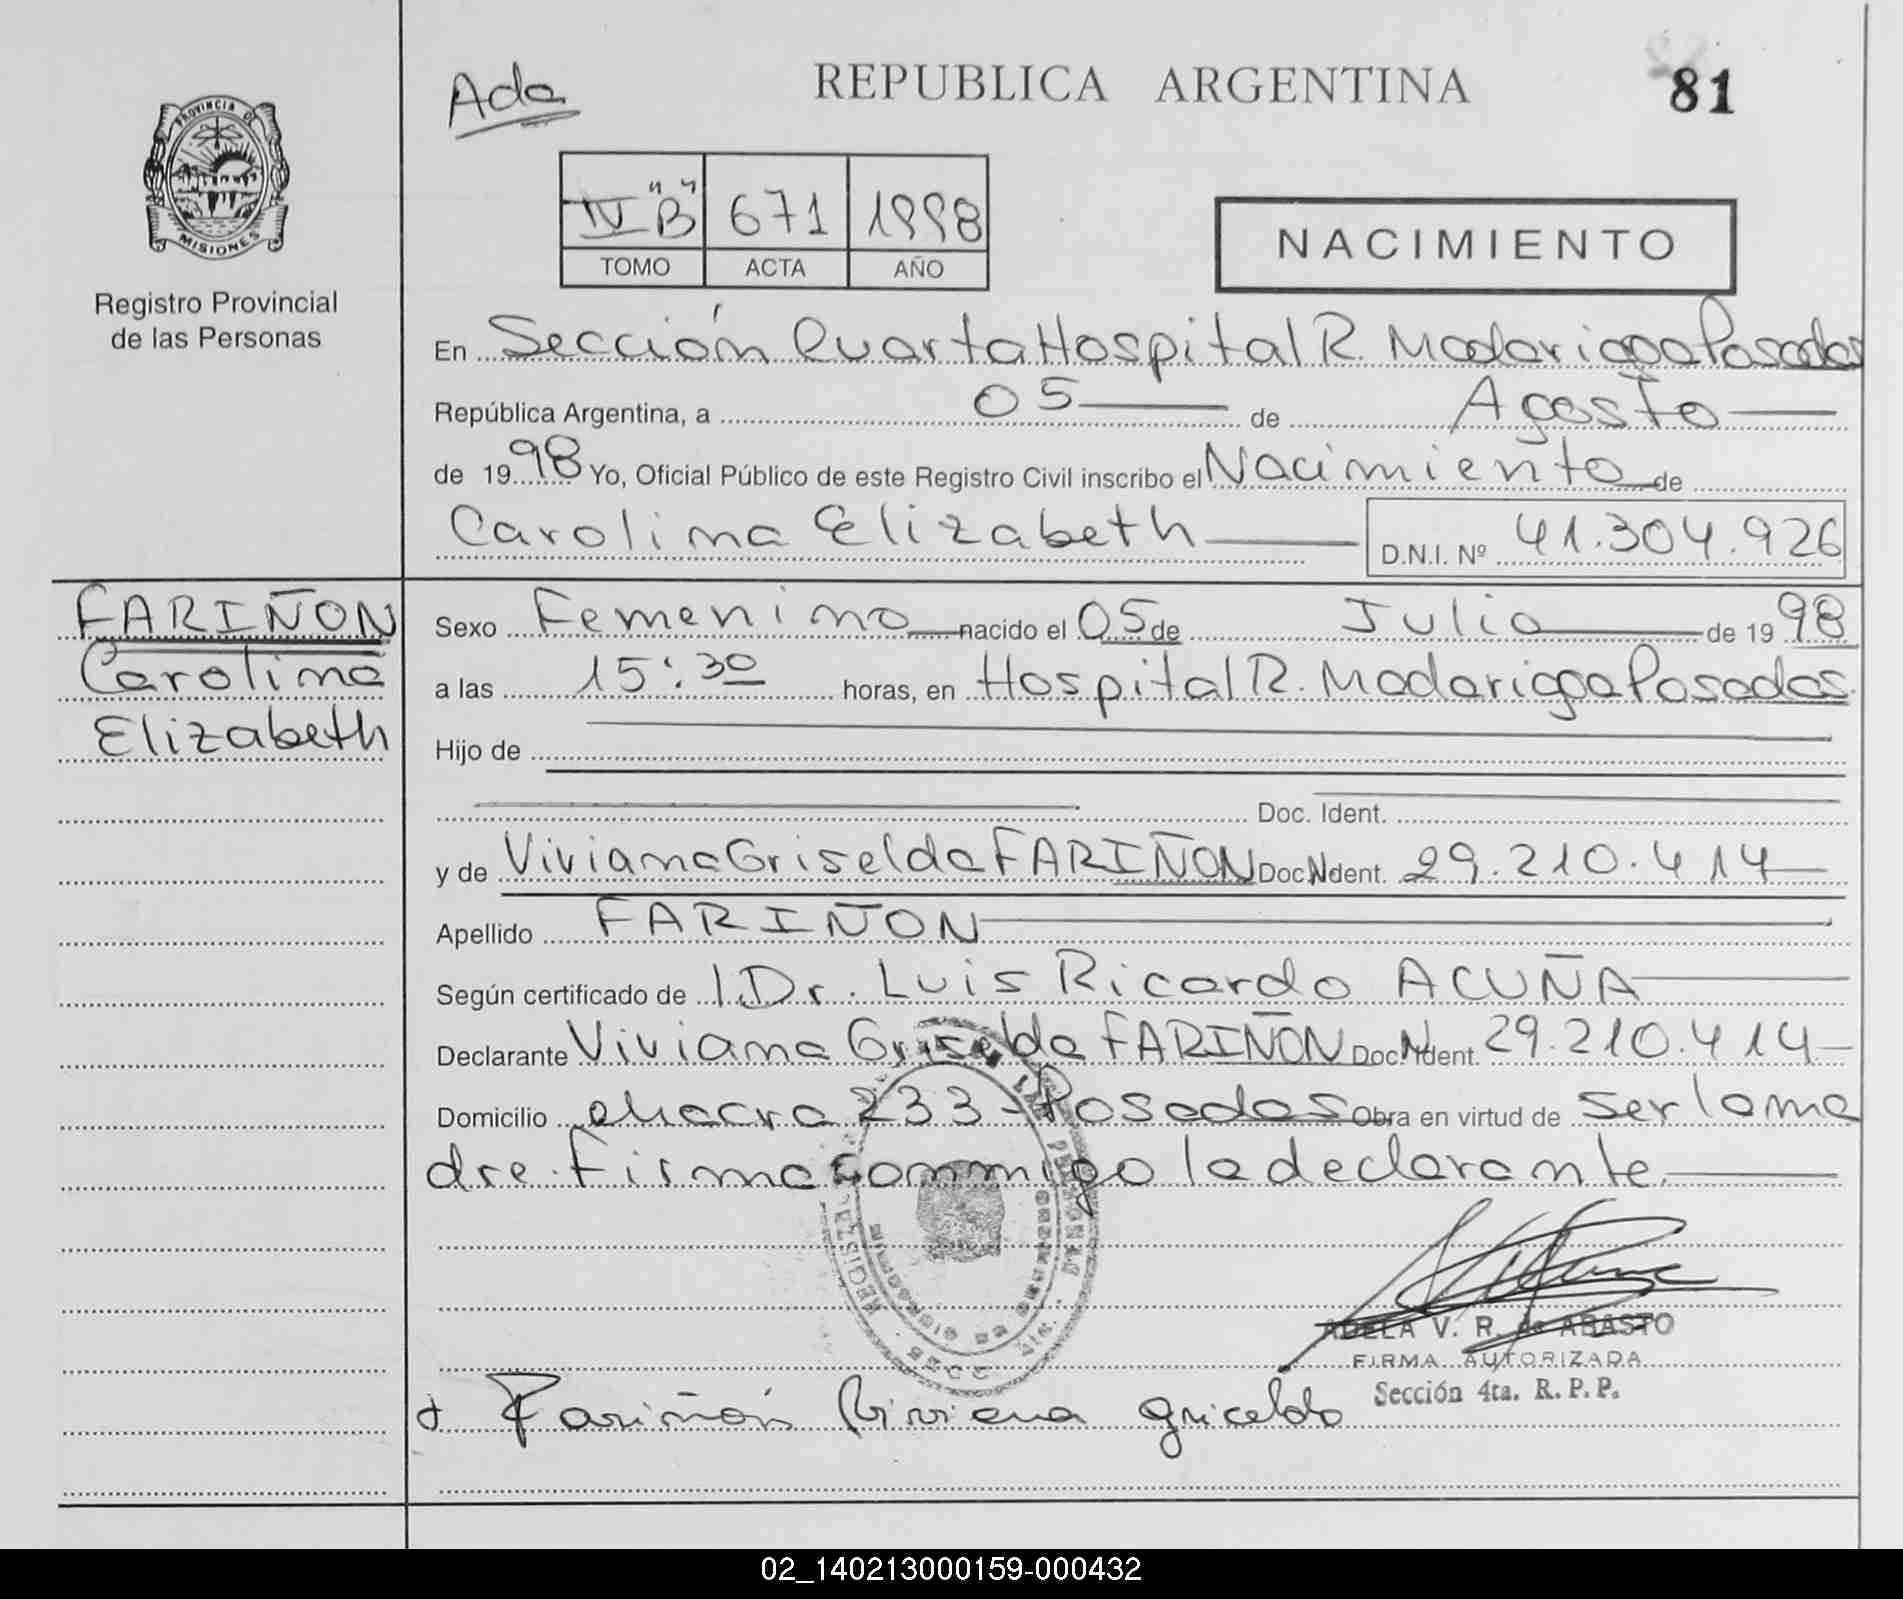 Ada
REPUBLICA ARGENTINA
81
PROVINCIA DE
MISIONES
Registro Provincial
de las Personas
IV "B" 671 1998
TOMO ACTA AÑO
NACIMIENTO
En Sección Cuarta Hospital R. Madariaga Posadas
República Argentina, a 05 de Agosto
de 1998 Yo, Oficial Público de este Registro Civil inscribo el Nacimiento de
Carolina Elizabeth D.N.I. Nº 41.304.926
FARIÑON
Carolina
Elizabeth
Sexo Femenino nacido el 05 de Julio de 1998
a las 15:30 horas, en Hospital R. Madariaga Posadas.
Hijo de
Doc. Ident.
y de Viviana Griselda FARIÑON Doc. Ident. 29.210.414
Apellido FARIÑON
Según certificado de Dr. Luis Ricardo ACUÑA
Declarante Viviana Griselda FARIÑON Doc. Ident. 29.210.414
Domicilio chacra 233 - Posadas Obra en virtud de ser la ma
dre. Firma conmigo la declarante.
ADELA V. R. de ABASTO
FIRMA AUTORIZADA
Sección 4ta. R. P. P.
Fariñón Viviana Griselda
02_140213000159-000432